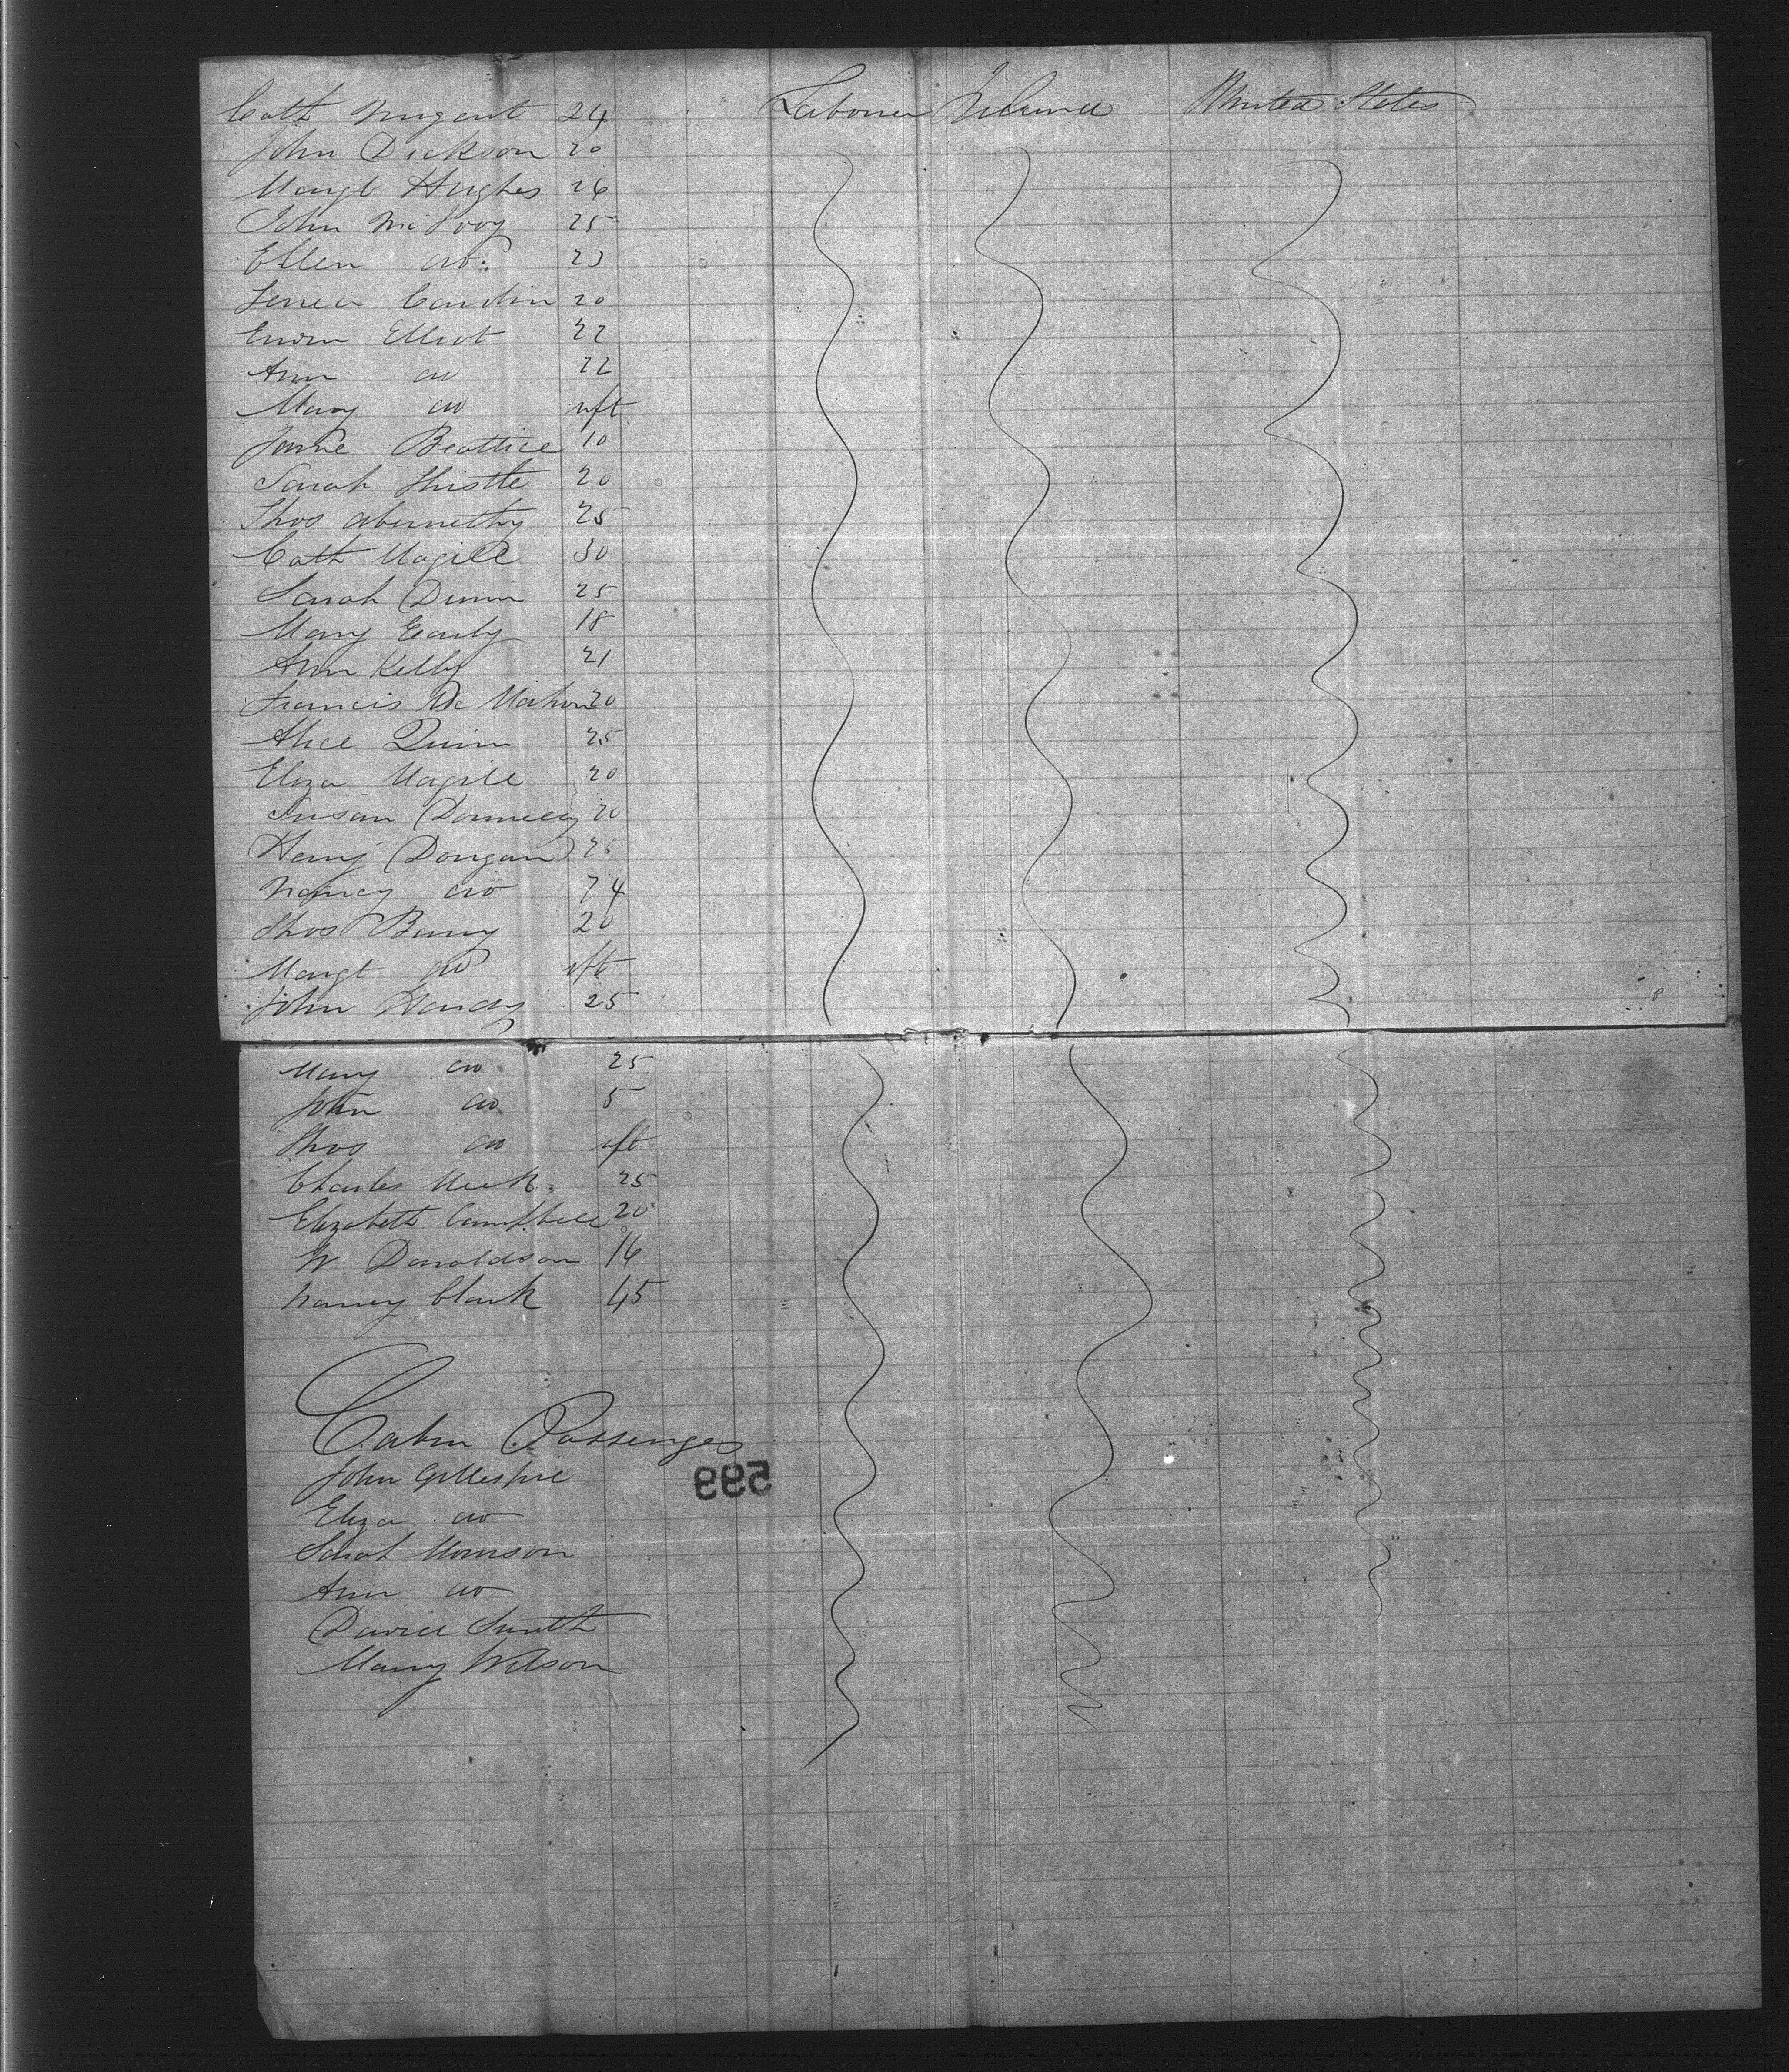 Cath Nugent 24 Labourer Ireland United States
John Dickson 20
Margt Hughes 26
John McEvoy 25
Ellen do. 23
Carolin 20
Elliot 22
Ann do 22
Mary do nft
Jane Beattice 10
Sarah Thistle 20
Thos abernethy 25
Cath Magill 30
Sarah Dunn 25
Mary Early 18
Ann Kelly 21
Francis Mc Mahon 20
Alice Quinn 25
Eliza Magill 20
Susan Donnelly 20
Henry Dongan 26
Nancy do 24
Thos Barry 20
Margt do nft
John Handy 25
Mary do 25
John do 5
Thos do nft
Charles Meek 25
Elizabeth Campbell 20
W Donaldson 16
Nancy Clark 45
Cabin Passengers
John Gillespie
599
Eliza do
Sarah Morrison
Ann do
David Smith
Mary Wilson